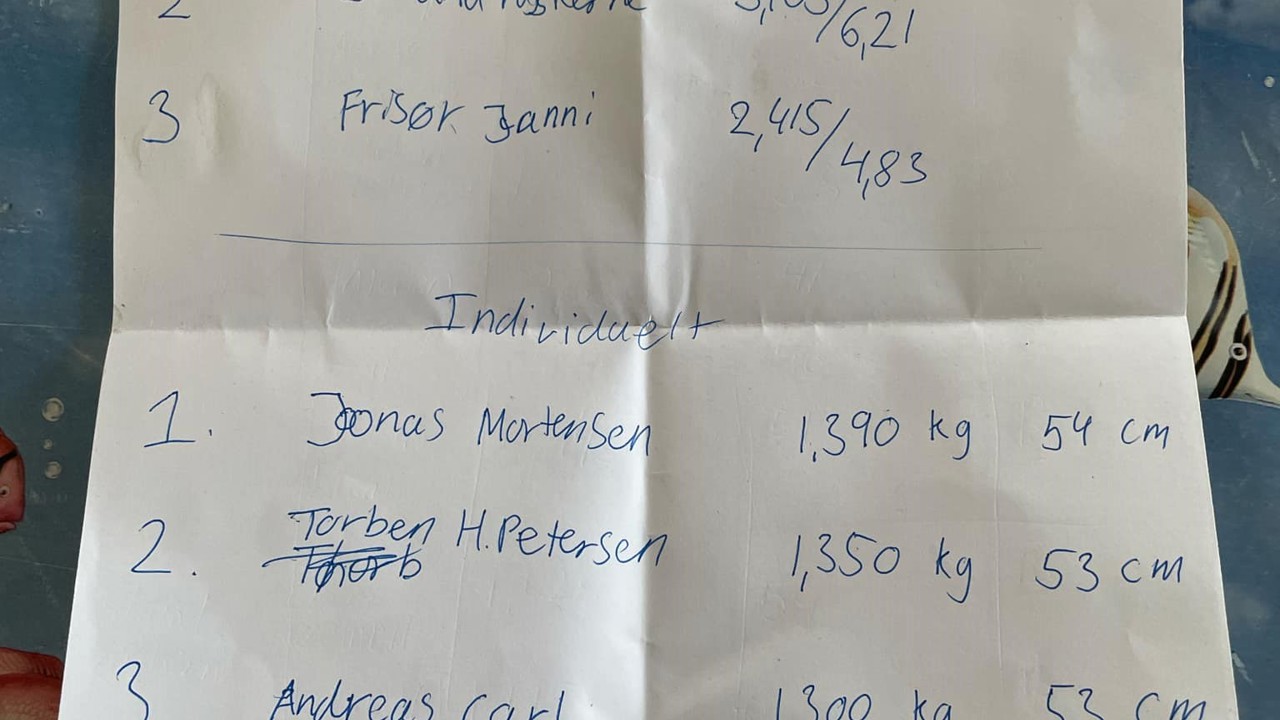 2
6,21
3 Frisør Janni 2,415/4,83
Individuelt
1. Jonas Mortensen 1,390 kg 54 cm
2. Torben H. Petersen 1,350 kg 53 cm
Thorb
3 Andreas Carl 1300 kg 53 cm